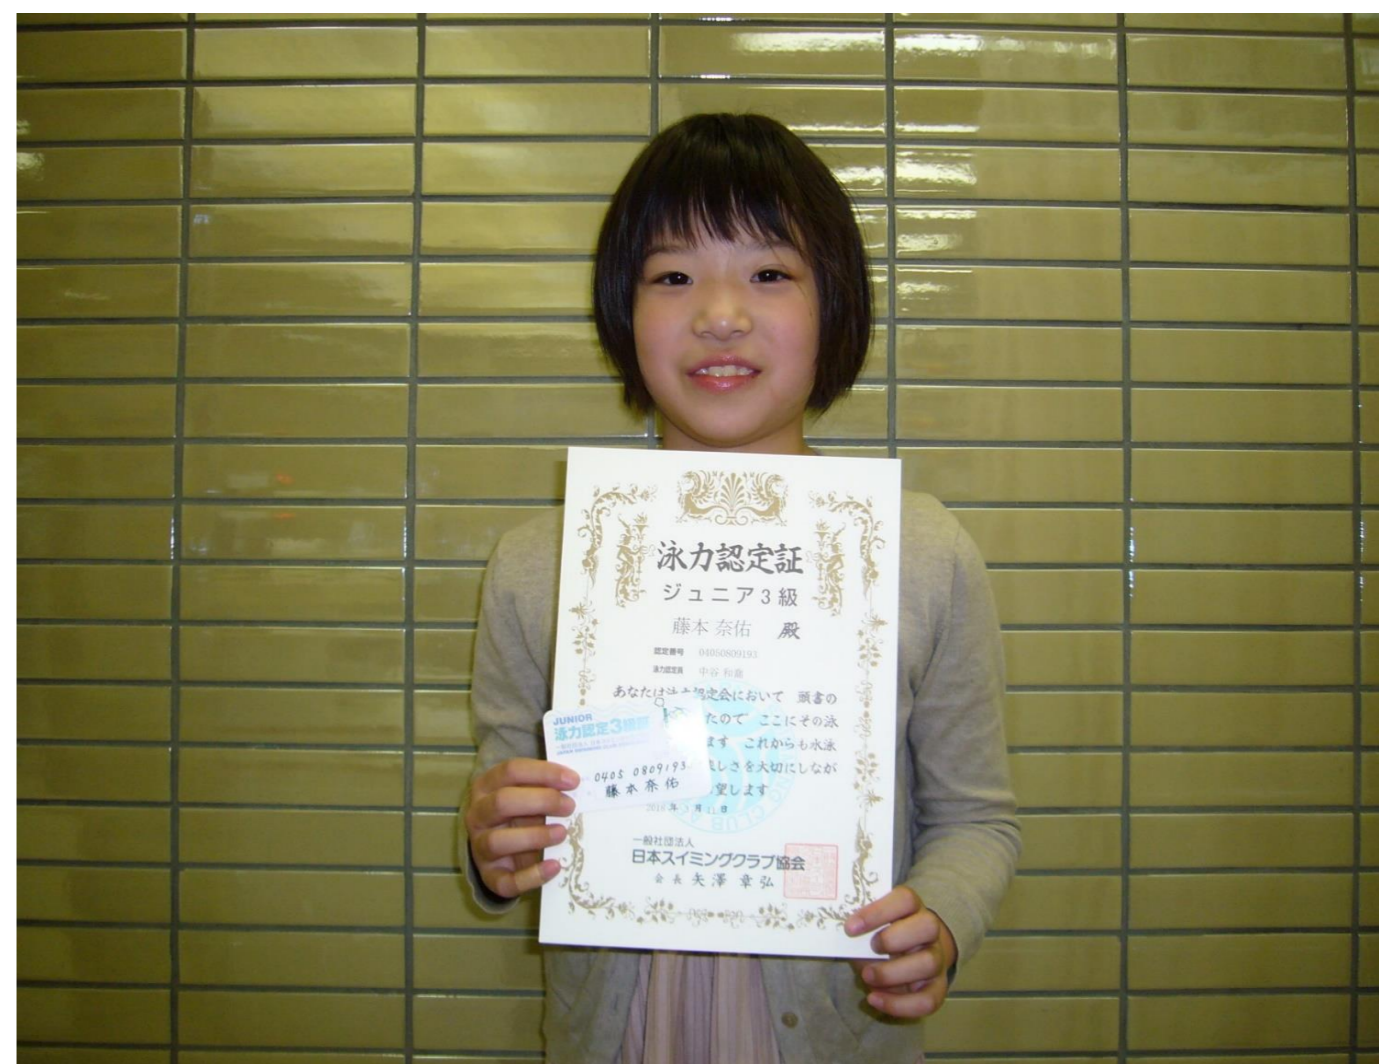 泳力認定証
ジュニア3級
藤本 奈佑 殿
認定番号 04050809193
泳力認定員 中谷 和
あなたは泳力認定会において 頭書の
たので ここにその泳
ます これからも水泳
楽しさを大切にしなが
望します
2016年3月11日
一般社団法人
日本スイミングクラブ協会
会長 矢澤 章弘
JUNIOR
泳力認定3級
0405 0809193
藤本奈佑